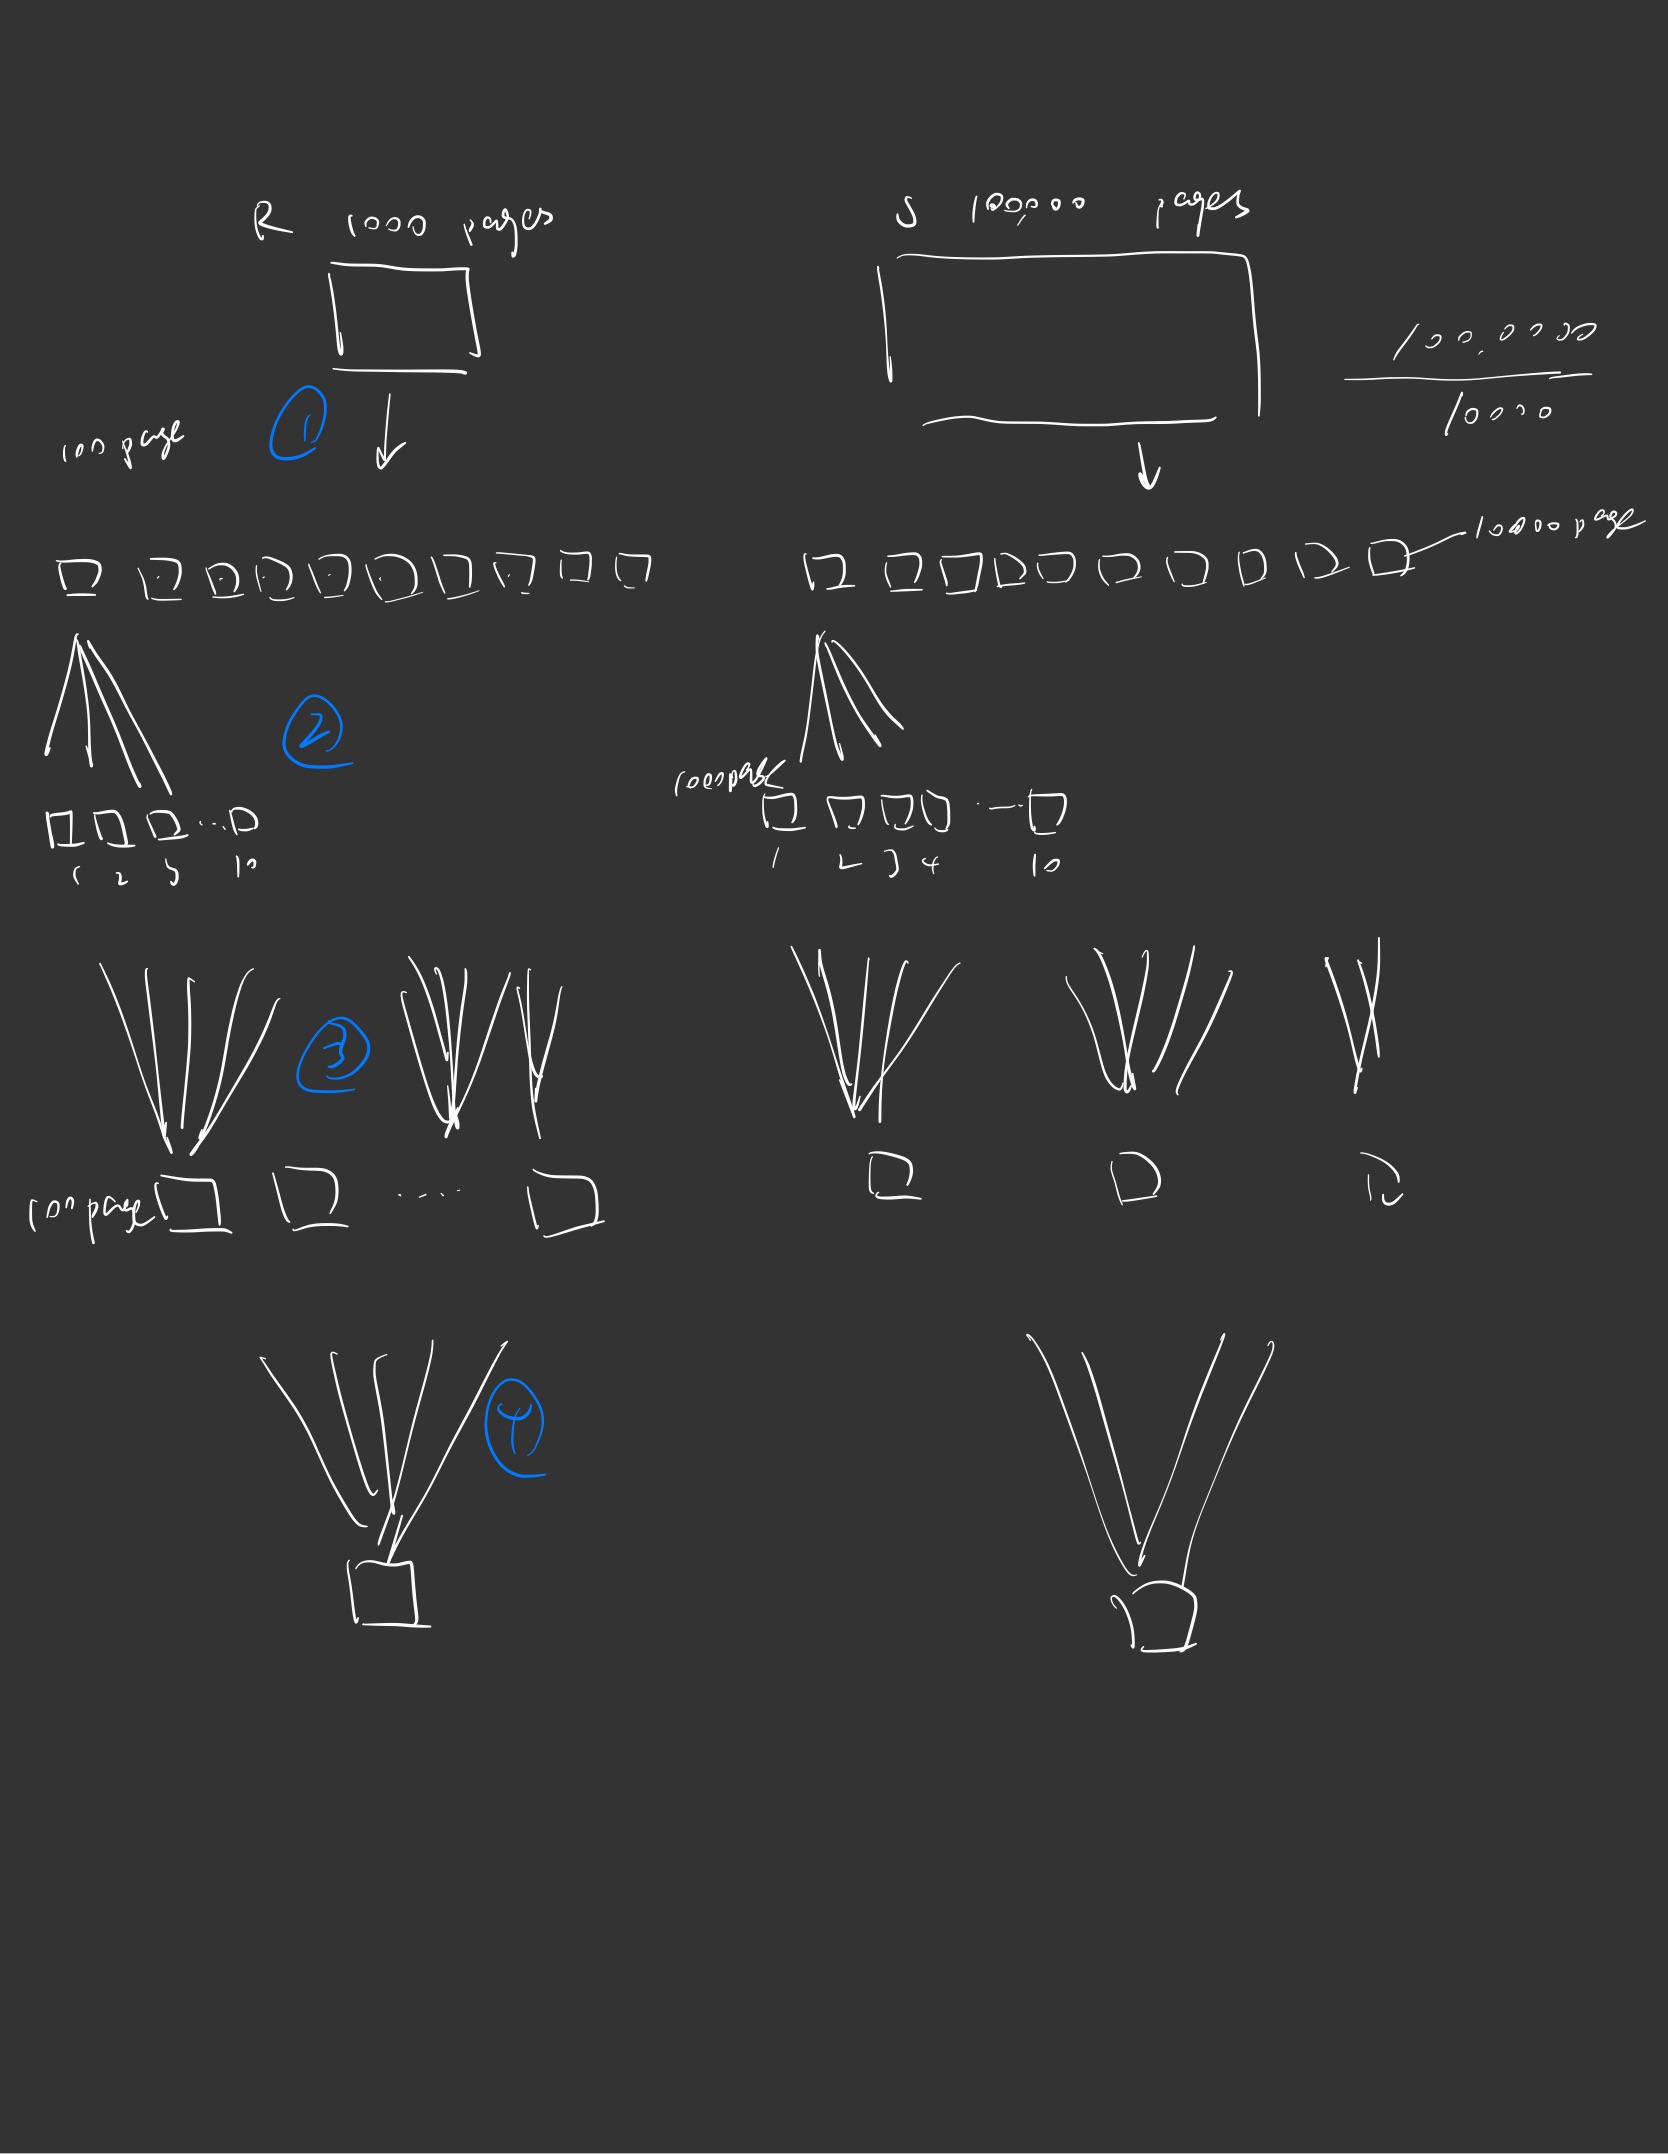 R 1000 pages
S 100,000 pages
100,0000
10000
①
100 page
10000 page
②
1000 page
1 2 3 10
1 2 3 4 10
③
100 page